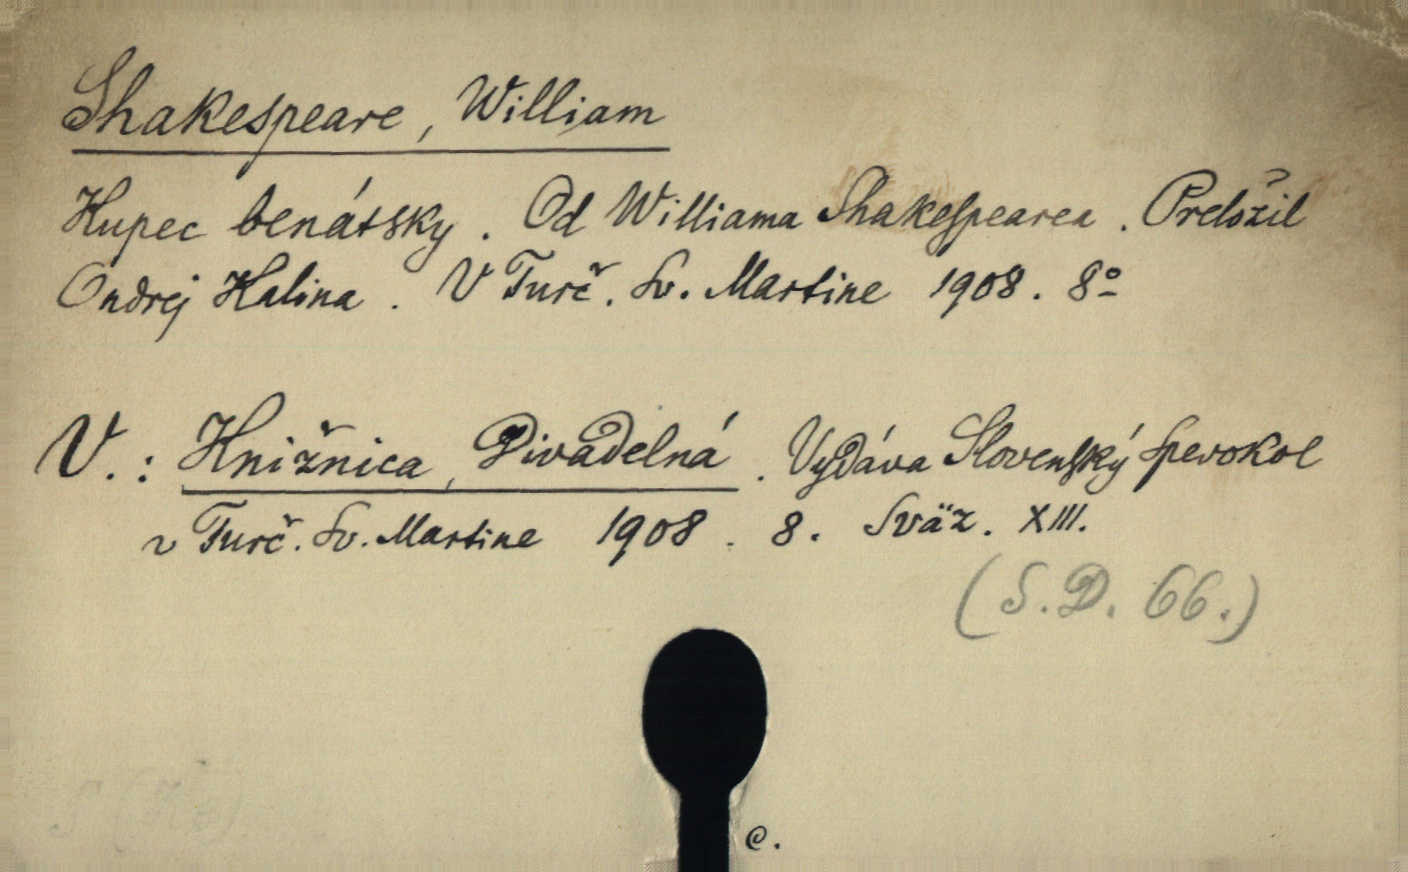 Shakespeare, William
Kupec benátsky. Od Williama Shakespearea. Preložil
Ondrej Halina. V Turč. Sv. Martine 1908. 8º
V.: Knižnica, Divadelná. Vydáva Slovenský spevokol
v Turč. Sv. Martine 1908. 8. Sväz. XIII.
(S.D. 66.)
C.